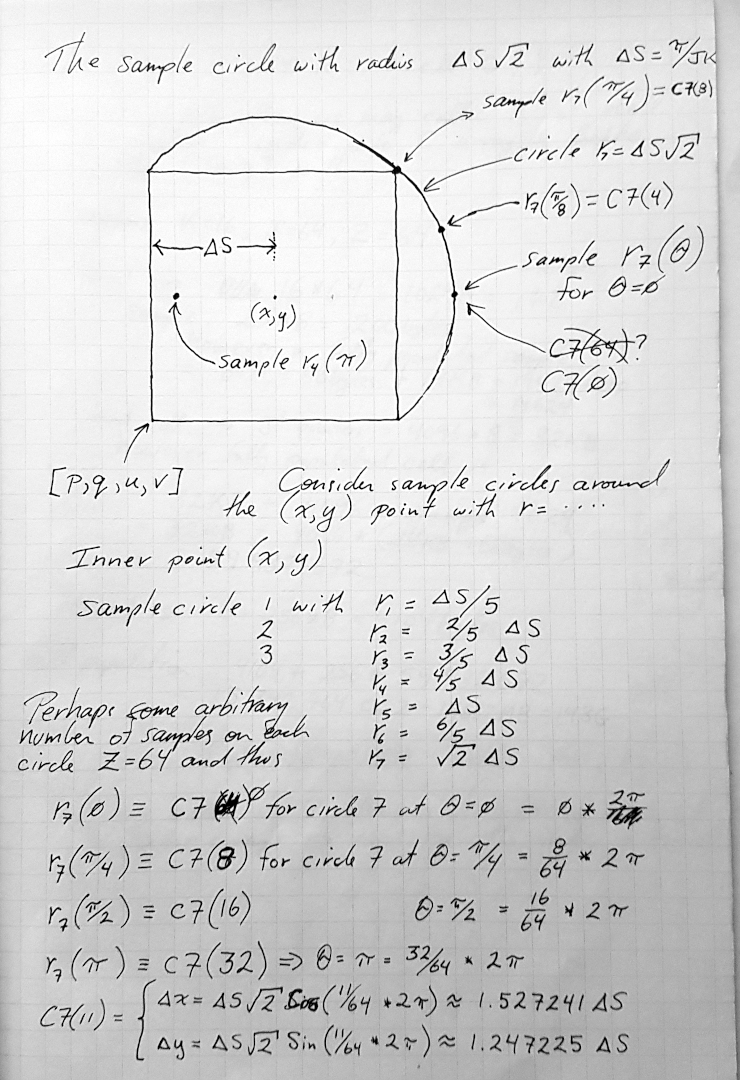 The sample circle with radius ΔS√2 with ΔS = π/JK
sample r₇(π/4) = C7(8)
circle r₇ = ΔS√2
r₇(π/8) = C7(4)
ΔS
sample r₇(θ)
for θ=∅
(x,y)
sample r₄(π)
C7(64)?
C7(∅)
[p,q,u,v]
Consider sample circles around
the (x,y) point with r = ....
Inner point (x,y)
sample circle 1 with r₁ = ΔS/5
2 r₂ = 2/5 ΔS
3 r₃ = 3/5 ΔS
r₄ = 4/5 ΔS
Perhaps some arbitrary
number of samples on each
circle Z=64 and thus
r₅ = ΔS
r₆ = 6/5 ΔS
r₇ = √2 ΔS
r₇(∅) ≡ C7(∅) for circle 7 at θ=∅ = ∅ * 2π
r₇(π/4) ≡ C7(8) for circle 7 at θ=π/4 = 8/64 * 2π
r₇(π/2) ≡ C7(16) θ=π/2 = 16/64 * 2π
r₇(π) ≡ C7(32) ⇒ θ=π = 32/64 * 2π
C7(11) = { Δx = ΔS√2 Cos(11/64 * 2π) ≈ 1.527241 ΔS
Δy = ΔS√2 Sin(11/64 * 2π) ≈ 1.247225 ΔS